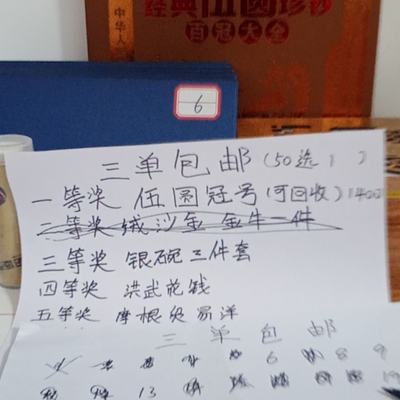 中华人
经典伍圆珍钞
百冠大全
6
三单包邮(50选1)
一等奖 伍圆冠号(可回收)1400
二等奖 绒沙金金牛一件
三等奖 银碗三件套
四等奖 洪武花钱
五等奖 摩根贸易洋
三单包邮
6 8 9
13 19